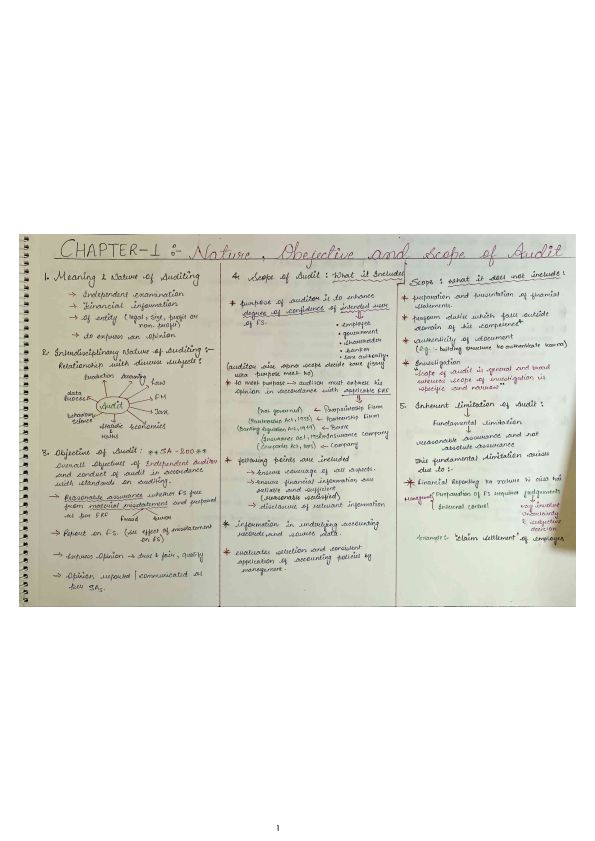 CHAPTER-1 :- Nature, Objective and Scope of Audit
1. Meaning & Nature of Auditing
→ Independent examination
→ Financial information
→ of entity (legal, size, profit or
non-profit)
→ to express an opinion
2. Interdisciplinary Nature of Auditing :-
Relationship with diverse subjects :
Production
Law
data
Process
FM
Audit
Tax
behaviour
science
Economics
Maths
3. Objective of Audit : **SA-200**
Overall objectives of Independent Auditor
and conduct of audit in accordance
with standards on auditing.
→ Reasonable assurance whether FS free
from material misstatement and prepared
as per FRF
Fraud Error
→ Report on FS. (see effect of misstatement
on FS)
→ Express Opinion → true & fair, qualify
→ Opinion reported / communicated as
per SAs.
4. Scope of Audit : What it Includes
* purpose of auditor is to enhance
degree of confidence of intended user
of FS.
• employee
• government
• shareholder
• banker
• tax authority
* to meet purpose → auditor must express his
opinion in accordance with applicable FRF
(not governed) ← Proprietorship Firm
(Partnership Act, 1932) ← Partnership Firm
(Banking Regulation Act, 1949) ← Bank
(Insurance Act, 1938) ← Insurance Company
(Companies Act, 2013) ← Company
* following points are included
→ ensure coverage of all aspects.
→ ensure financial information are
reliable and sufficient
→ disclosure of relevant information
* information in underlying accounting
records and source data.
* evaluates selection and consistent
application of accounting policies by
management.
Scope : What it does not include :
* preparation and presentation of financial
statements.
* perform duties which falls outside
domain of his competence
* authenticity of document
* Investigation
"Scope of audit is general and broad
whereas scope of investigation is
specific and narrow"
5. Inherent limitation of Audit :
Fundamental limitation
reasonable assurance and not
absolute assurance
This fundamental limitation arises
due to :-
* Financial Reporting
Preparation of FS requires judgements
Internal control
may involve
uncertainty
& subjective
decision
Example : "claim settlement" of employee
1